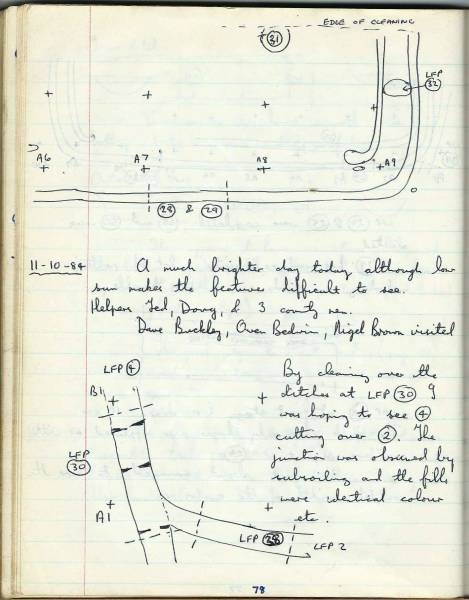 EDGE OF CLEANING
31
LFP
32
A6 A7 A8 A9
28 & 29
11-10-84 A much brighter day today although low
sun makes the features difficult to see.
Helpers Ted, Doug, & 3 county men.
Dave Buckley, Owen Bedwin, Nigel Brown visited
LFP 4
B1
LFP
30
A1
LFP 28
LFP 2
By cleaning over the
ditches at LFP 30 I
was hoping to see 4
cutting over 2. The
junction was obscured by
subsoiling and the fills
were identical colour
etc.
78